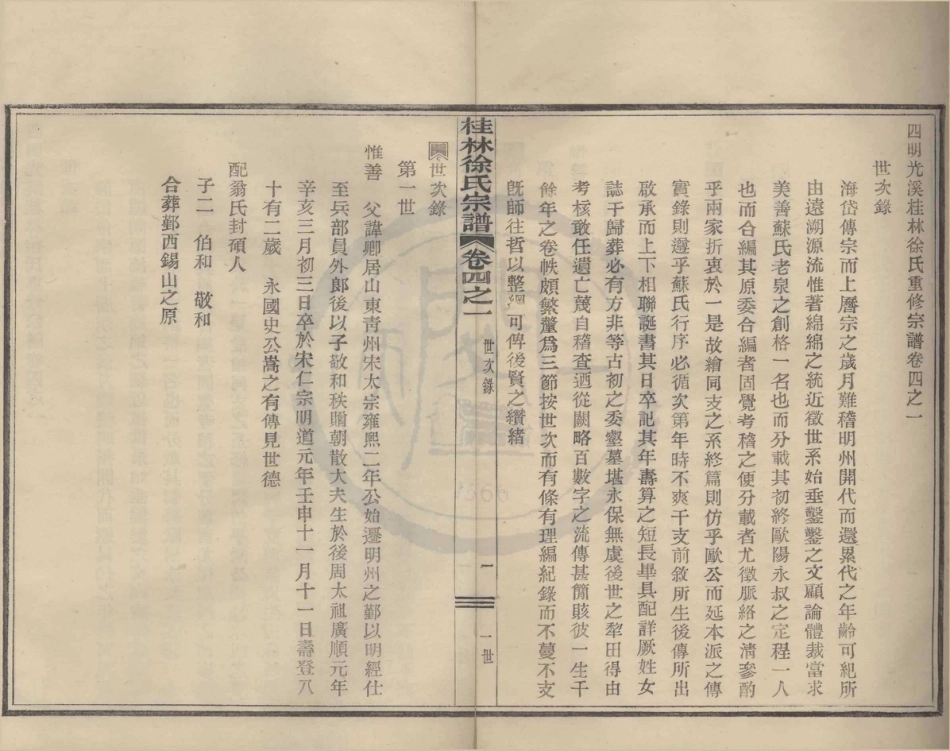 四明光溪桂林徐氏重修宗譜卷四之一
世次錄
海岱傳宗而上曆宗之歲月難稽明州開代而還累代之年齡可紀所
由遠溯源流惟著綿綿之統近徵世系始垂鑿鑿之文顧論體裁當求
美善蘇氏老泉之創格一名也而分載其初終歐陽永叔之定程一人
也而合編其原委合編者固覺考稽之便分載者尤徵脈絡之清參酌
乎兩家折衷於一是故繪同支之系終篇則仿乎歐公而延本派之傳
實錄則遵乎蘇氏行序必循次第年時不爽干支前敘所生後傳所出
啟承而上下相聯誕書其日卒記其年壽算之短長畢具配詳厥姓女
誌于歸葬必有方非等古初之委壑墓堪永保無虞後世之犂田得由
考核敢任遺亡蔑自稽查迺從闕略百數字之流傳甚簡賅彼一生千
餘年之卷帙頗繁釐為三節按世次而有條有理編紀錄而不蔓不支
旣師往哲以整 可俾後賢之纘緒
桂林徐氏宗譜
卷四之一
世次錄
一
一世
世次錄
第一世
惟善 父諱卿居山東靑州宋太宗雍熙二年公始遷明州之鄞以明經仕
至兵部員外郎後以子敬和秩贈朝散大夫生於後周太祖廣順元年
辛亥三月初三日卒於宋仁宗明道元年壬申十一月十一日壽登八
十有二歲 永國史公嵩之有傳見世德
配翁氏封碩人
子二 伯和 敬和
合葬鄞西錫山之原
1366